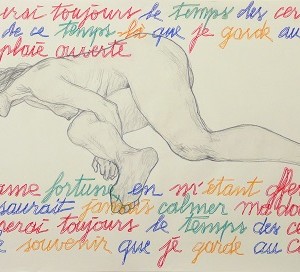 erai toujours le temps des ceri
de ce temps là que je garde au
plaie ouverte
ame fortune en m'étant offer
saurait jamais calmer ma dou
merai toujours le temps des ce
le souvenir que je garde au c